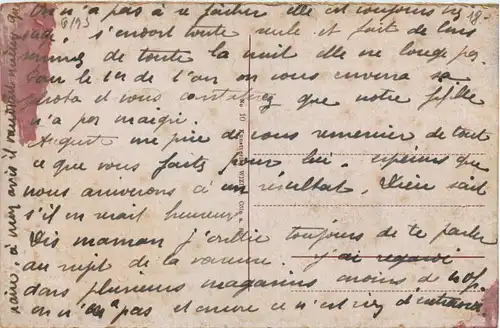 On n'a pas à se fâcher elle est toujours très
sage, s'endort toute seule et fait de bons
sommes de toute la nuit elle ne bouge pas.
Pour le 1er de l'an on vous enverra sa
photo et vous constaterez que notre fifille
n'a pas maigri.
Auguste me prie de vous remercier de tout
ce que vous faites pour lui. espérons que
nous arriverons à un résultat. Dieu sait
s'il en serait heureux
Dis maman j'oublie toujours de te parler
au sujet de la j'ai regardé
dans plusieurs magasins moins de
on n'en a pas et encore ce n'est rien d'extra